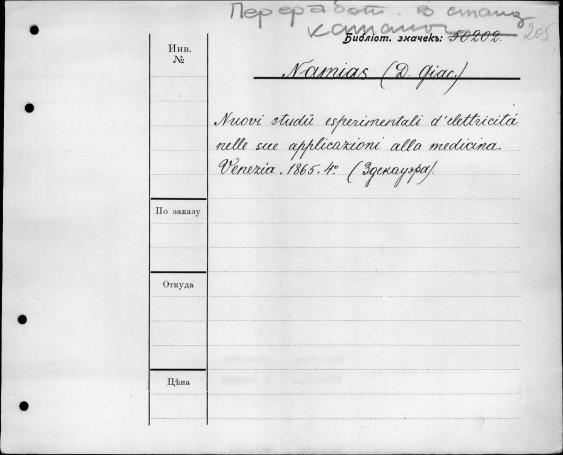 Переработ. в станд
каталог
Библіот. значекъ: 50202. 205
Инв.
№
Namias (D. Giac.)
Nuovi studii esperimentali d'elettricitá
nelle sue applicazioni alla medicina.
Venezia. 1865. 4º (Здекауэра).
По заказу
Откуда
Цѣна